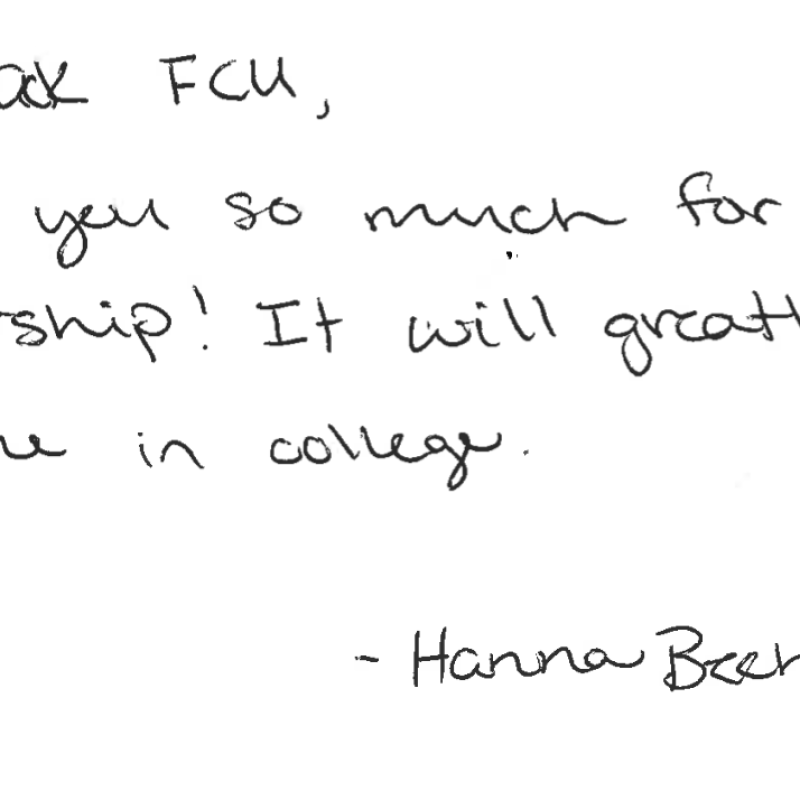 ack FCU,
you so much for
rship! It will greatl
me in college.
- Hanna Beer